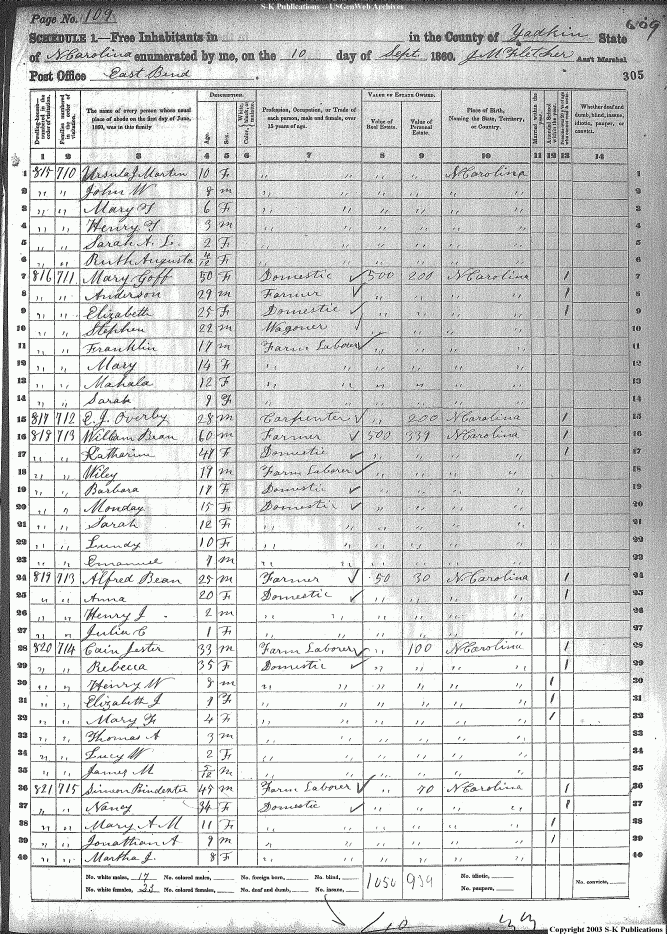 S-K Publications -- USGenWeb Archives
Page No. 109
SCHEDULE 1.—Free Inhabitants in in the County of Yadkin State
of N Carolina enumerated by me, on the 10 day of Sept 1860. J M Fletcher Ass't Marshal
Post Office East Bend 305
The name of every person whose usual place of abode on the first day of June, 1860, was in this family
DESCRIPTION.
Age. Sex.
Profession, Occupation, or Trade of each person, male and female, over 15 years of age.
VALUE OF ESTATE OWNED.
Value of Real Estate. Value of Personal Estate.
Place of Birth, Naming the State, Territory, or Country.
Whether deaf and dumb, blind, insane, idiotic, pauper, or convict.
1 2 3 4 5 6 7 8 9 10 11 12 13 14
1 815 710 Ursula J Martin 10 F " " " " N Carolina 1
2 " " John W 8 m " " " " " " 2
3 " " Mary F 6 F " " " " " " 3
4 " " Henry T 3 m " " " " " " 4
5 " " Sarah A. L. 2 F " " " " " " 5
6 " " Ruth Augusta F " " " " " " 6
7 816 711 Mary Goff 50 F Domestic 500 200 N Carolina / 7
8 " " Anderson 29 m Farmer " " " " / 8
9 " " Elizabeth 25 F Domestic " " " " / 9
10 " " Stephen 22 m Wagoner " " " " 10
11 " " Franklin 17 m Farm Laborer " " " " 11
12 " " Mary 14 F " " " " " " 12
13 " " Mahala 12 F " " " " " " 13
14 " " Sarah 9 F " " " " " " 14
15 817 712 E. J. Overby 28 m Carpenter " 200 N Carolina / 15
16 818 713 William Bean 60 m Farmer 500 339 N Carolina / 16
17 " " Katharine F Domestic " " " " / 17
18 " " Wiley 19 m Farm Laborer " " " " 18
19 " " Barbara 17 F Domestic " " " " 19
20 " " Monday 15 F Domestic " " " " 20
21 " " Sarah 12 F " " " " " " 21
22 " " Lundy 10 F " " " " " " 22
23 " " Emanuel m " " " " " " 23
24 819 713 Alfred Bean 25 m Farmer 50 30 N Carolina / 24
25 " " Anna 20 F Domestic " " " " / 25
26 " " Henry J 2 m " " " " " " 26
27 " " Julia C 1 F " " " " " " 27
28 820 714 Cain Jester 33 m Farm Laborer " 100 N Carolina / 28
29 " " Rebecca 35 F Domestic " " " " / 29
30 " " Henry W 8 m " " " " " " / 30
31 " " Elizabeth J F " " " " " " / 31
32 " " Mary F 4 F " " " " " " / 32
33 " " Thomas A 3 m " " " " " " 33
34 " " Lucy W 2 F " " " " " " 34
35 " " James M 5/12 m " " " " " " 35
36 821 715 Simeon m Farm Laborer " 70 N Carolina / 36
37 " " Nancy 34 F Domestic " " " " / 37
38 " " Mary A M 11 F " " " " " " / 38
39 " " Jonathan A 9 m " " " " " " / 39
40 " " Martha J. 8 F " " " " " " 40
No. white males, 17 No. colored males, No. foreign born, No. blind, 1050 939 No. idiotic,
No. white females, 23 No. colored females, No. deaf and dumb, No. insane, No. paupers, No. convicts,
Copyright 2003 S-K Publications